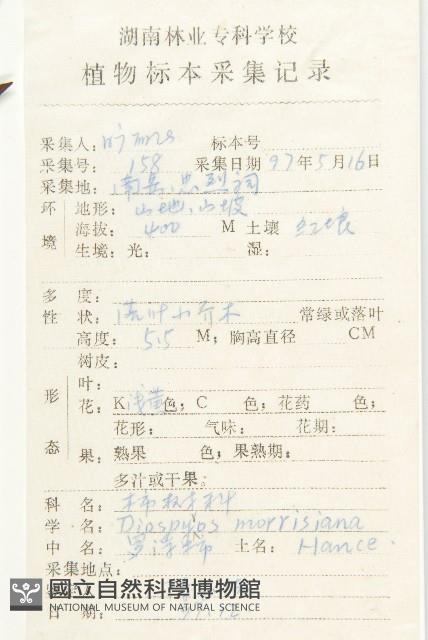 湖南林业专科学校
植物标本采集记录
采集人： 标本号
采集号： 158 采集日期 97年5月16日
采集地： 南岳忠烈祠
环境
地形： 山地山坡
海拔： 400 M 土壤 红壤
生境：光： 湿：
多度：
性状： 落叶小乔木 常绿或落叶
高度： 5.5 M；胸高直径 CM
树皮：
形态
叶：
花：K 色；C 色；花药 色；
花形： 气味： 花期：
果：熟果 色；果熟期：
多汁或干果。
科名： 柿树科
学名： Diospyros morrisiana
中名： 罗浮柿 土名： Hance.
采集地点：
國立自然科學博物館
NATIONAL MUSEUM OF NATURAL SCIENCE
日期：